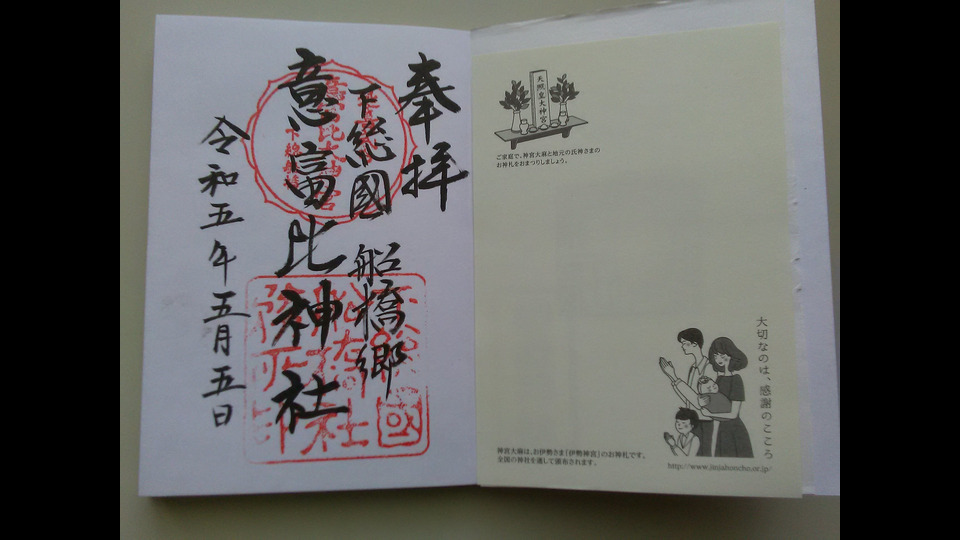 奉拝
下総國 船橋郷
意富比神社
令和五年五月五日
天照皇大神宮
ご家庭で、神宮大麻と地元の氏神さまの
お神札をおまつりしましょう。
大切なのは、感謝のこころ
神宮大麻は、お伊勢さま「伊勢神宮」のお神札です。
全国の神社を通して頒布されます。
http://www.jinjahoncho.or.jp/